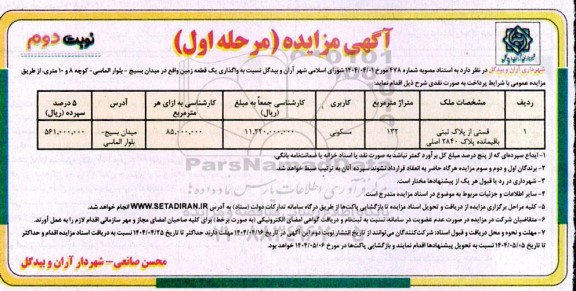 آگهی مزایده (مرحله اول)
نوبت دوم
شهرداری آران و بیدگل در نظر دارد به استناد مصوبه شماره ۲۷۸ مورخ ۱۴۰۴/۰۴/۰۱ شورای اسلامی شهر آران و بیدگل نسبت به واگذاری یک قطعه زمین واقع در میدان بسیج - بلوار الماسی- کوچه ۸ و ۱۰ متری، از طریق
مزایده عمومی با شرایط پرداخت به صورت نقدی شرح ذیل اقدام نماید:
ردیف مشخصات ملک متراژ مترمربع کاربری کارشناسی جمعاً به مبلغ (ریال) کارشناسی به ازای هر مترمربع آدرس ۵ درصد سپرده (ریال)
۱ قستی از پلاک ثبتی باقیمانده پلاک ۲۸۴۰ اصلی ۱۳۲ مسکونی ۱۱,۲۲۰,۰۰۰,۰۰۰ ۸۵,۰۰۰,۰۰۰ میدان بسیج- بلوار الماسی ۵۶۱,۰۰۰,۰۰۰
۱- ایداع سپرده‌ای که از پنج درصد مبلغ کل برآورد کمتر نباشد به صورت نقد یا اسناد خزانه یا ضمانت‌نامه بانکی.
۲- برندگان اول و دوم و سوم مزایده هرگاه حاضر به انعقاد قرارداد نشوند سپرده آنان به ترتیب ضبط خواهد شد.
۳- شهرداری در رد یا قبول هر یک از پیشنهادها مختار است.
۴- سایر اطلاعات و جزئیات مربوط به موضوع در اسناد مزایده مندرج است.
۵- کلیه مراحل برگزاری مزایده از دریافت و تحویل اسناد مزایده تا بازگشایی پاکت‌ها از طریق درگاه سامانه تدارکات دولت (ستاد) به آدرس WWW.SETADIRAN.IR انجام خواهد شد.
۶- متقاضیان شرکت در مزایده در صورت عدم عضویت در سامانه، نسبت به ثبت‌نام و دریافت گواهی امضای الکترونیکی (به صورت برخط) برای کلیه صاحبان امضای مجاز و مهر سازمانی اقدام لازم را به عمل آورند.
۷- مهلت و نحوه و محل دریافت و قبول اسناد: شرکت‌کنندگان می‌توانند از تاریخ انتشار نوبت دوم این آگهی در تاریخ ۱۴۰۴/۰۴/۱۶ مهلت دارند حداکثر تا تاریخ ۱۴۰۴/۰۴/۲۵ نسبت به دریافت اسناد مزایده اقدام و حداکثر
تا تاریخ ۱۴۰۴/۰۵/۰۵ نسبت به تحویل پیشنهادها اقدام نمایند و بازگشایی پاکت‌ها در مورخ ۱۴۰۴/۰۵/۰۶ خواهد بود.
محسن صانعی- شهردار آران و بیدگل
ParsNamadData